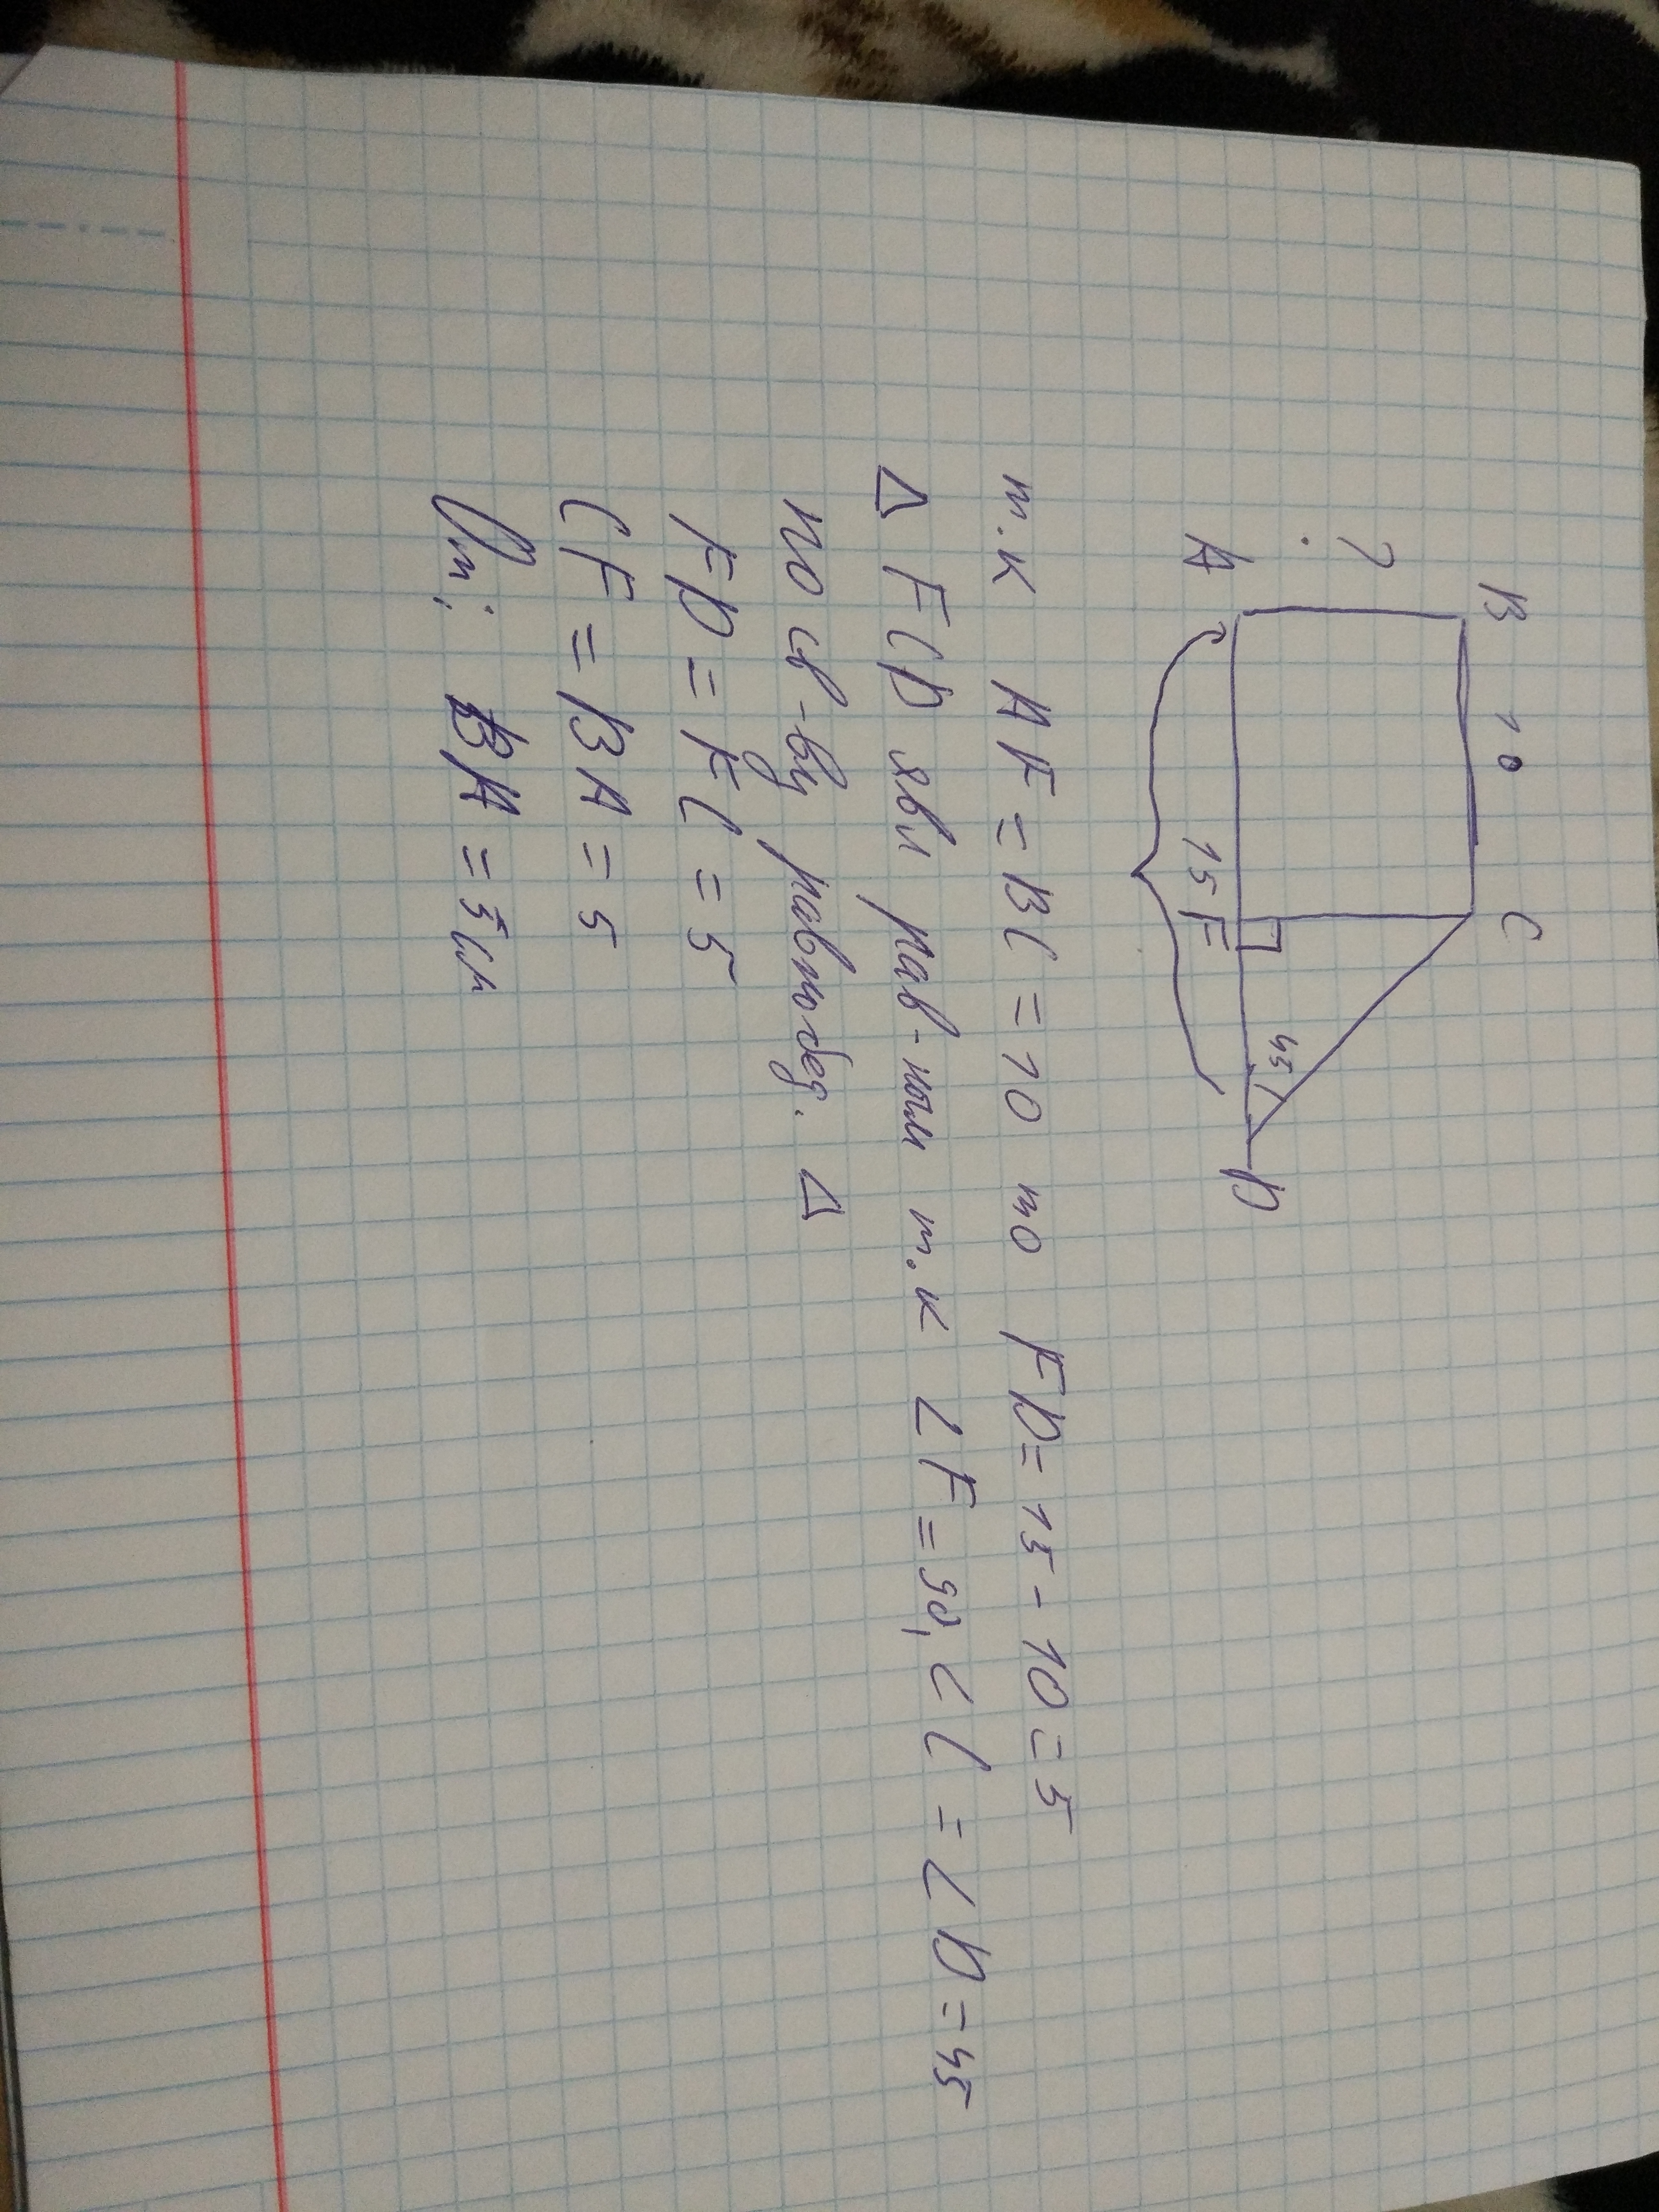 B 10 C
?
45
A 15 F D
т.к AF = BC = 10 то FD = 15 - 10 = 5
Δ FCD явл рав-ным т.к ∠F = 90, ∠C = ∠D = 45
по св-ву равнобед. Δ
FD = FC = 5
CF = BA = 5
От: BA = 5см